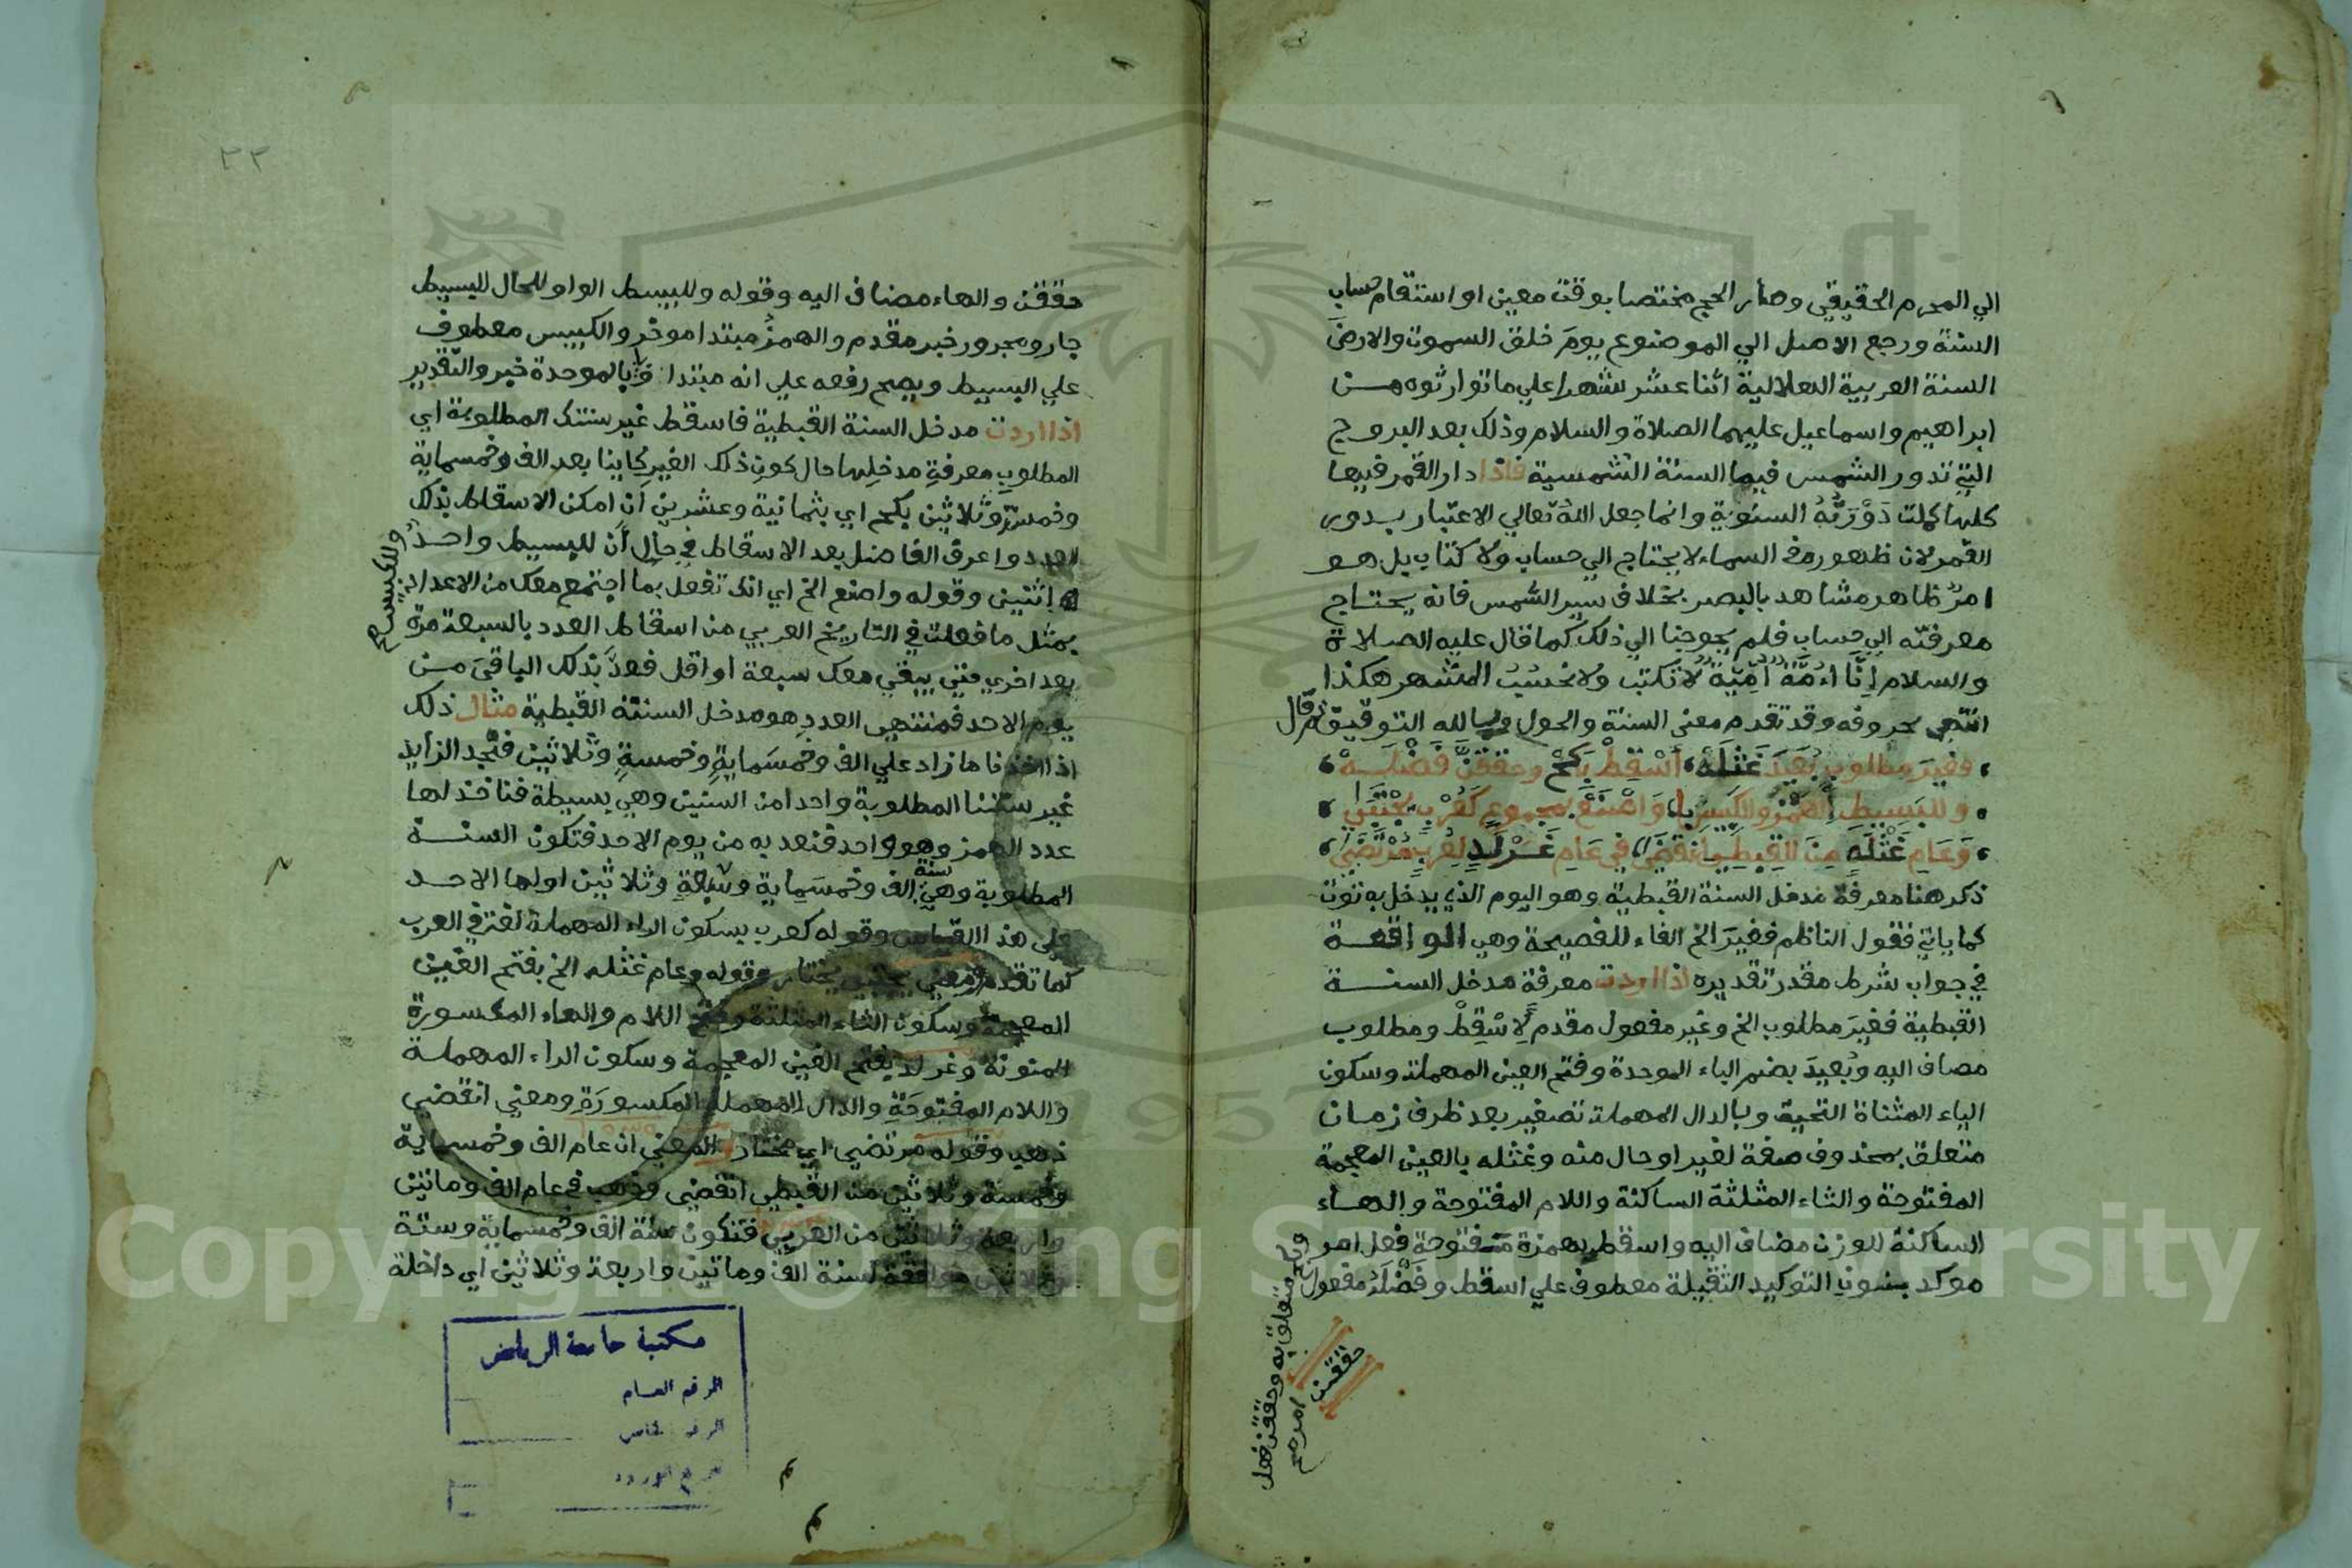 الي المحرم الحقيقي وصار الحج مختصا بوقت معين او استقام حساب
السنة ورجع الاصل الي الموضوع يوم خلق السموت والارض
السنة العربية الهلالية اثنا عشر شهرا علي ما توارثوه من
ابراهيم واسماعيل عليهما الصلاة والسلام وذلك بعد البروج
التي تدور الشمس فيها السنة الشمسية فاذا دار القمر فيها
كلها كملت دَوْرَتُهُ السنوية وانما جعل الله تعالي الاعتبار بدور
القمر لان ظهوره في السماء لا يحتاج الي حساب ولا كتاب بل هو
امر ظاهر مشاهد بالبصر بخلاف سير الشمس فانه يحتاج
معرفته الي حساب فلم يحوجنا الي ذلك كما قال عليه الصلاة
والسلام اِنَّا اُمَّةٌ اُمِّيَّةٌ لا نكتب ولا نحسب الشهر هكذا
انتهي بحروفه وقد تقدم معني السنة والحول وبالله التوفيق ثم قال
فغير مطلوب بُعَيدَ غَثْلَهْ اَسْقِطْ بِكَحٍ وحققنّ فَضْلَهْ
وللبَسيطِ الهمزُ والكبيسِ با وَاصْنَعْ بمجموعٍ كَعُرْبٍ يُجْتَبَي
وَعَامِ غَثْلَهٍ مِنَ القِبطِيِ انقضَي في عَامِ غَرْلَدٍ لِعُرْبٍ مُرْتَضَي
ذكر هنا معرفة مدخل السنة القبطية وهو اليوم الذي يدخل به توت
كما ياتي فقول الناظم فغيرَ الخ الفاء للفصيحة وهي الواقعة
في جواب شرط مقدر تقديره اذا اردت معرفة مدخل السنة
القبطية فغيرَ مطلوب الخ وغير مفعول مقدم لاسْقِطْ ومطلوب
مضاف اليه وبُعيدَ بضم الباء الموحدة وفتح العين المهملة وسكون
الياء المثناة التحية وبالدال المهملة تصغير بعد ظرف زمان
متعلق بمحذوف صفة لغير او حال منه وغثله بالغين المعجمة
المفتوحة والثاء المثلثة الساكنة واللام المفتوحة والهاء
الساكنة للوزن مضاف اليه واسقط بهمزة مفتوحة فعل امر
موكد بنون التوكيد الثقيلة معطوف علي اسقط وفَضْلَهُ مفعول
وبكح متعلق به وحققن فعل
امر صح
حققن
٣٣
حققن والهاء مضاف اليه وقوله وللبسيط الواو للحال للبسيط
جار ومجرور خبر مقدم والهمزُ مبتدا موخر والكبيس معطوف
علي البسيط ويصح رفعه علي انه مبتدا وبا بالموحدة خبر والتقدير
اذا اردت مدخل السنة القبطية فاسقط غير سنتك المطلوبة اي
المطلوبِ معرفةِ مدخلِها حال كونِ ذلك الغيرِ كاينا بعد الف وخمسماية
وخمسة وثلاثين بكح اي بثمانية وعشرين ان امكن الاسقاط بذلك
العدد واعرف الفاضل بعد الاسقاط في حال أن للبسيط واحد
وللكبيس صح
اثنين وقوله واصنع الخ اي انك تفعل بما اجتمع معك من الاعداد
بمثل ما فعلت في التاريخ العربي من اسقاط العدد بالسبعة مرة
بعد اخري متي يبقي معك سبعة او اقل فعدَّ بذلك الباقي من
يوم الاحد فمنتهي العددِ هو مدخل السنة القبطية مثال ذلك
اذا اخذنا ما زاد علي الف وخمسَمايةٍ وخمسةٍ وثلاثين فنجد الزايد
غير سنتنا المطلوبة واحدا من السنين وهي بسيطة فناخذ لها
عدد الهمز وهو واحد فنعد به من يوم الاحد فتكون السنة
المطلوبة وهي سنة الف وخمسَماية وستة وثلاثين اولها الاحد
علي هذا القياس وقوله كعرب بسكون الراء المهملة لغة في العرب
كما تقدم ومعني يجتبي يختار وقوله وعام غثله الخ بفتح الغين
المعجمة وسكون الثاء المثلثة وفتح اللام والهاء المكسورة
المنونة وغرلد بفتح الغين المعجمة وسكون الراء المهملة
واللام المفتوحَةِ والدال المهملة المكسورَةِ ومعني انقضي
ذهب وقوله مرتضي اي مختار والمعني ان عام الف وخمسماية
وخمسة وثلاثين من القبطي انقضي وذهب في عام الف وماتين
واربعة وثلاثين من العربي فتكون سنة الف وخمسماية وستة
وثلاثين موافقة لسنة الف وماتين واربعة وثلاثين اي داخلة
مكتبة جامعة الرياض
الرقم العام
الرقم الخاص
Copyright © King Saud University
1957